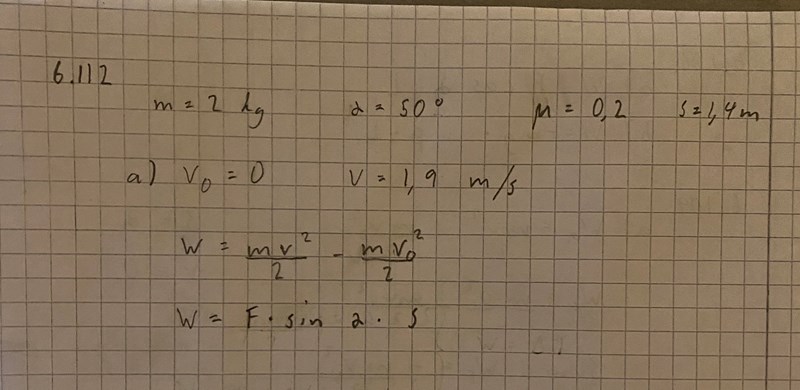 6.112
m = 2 kg α = 50° μ = 0,2 s = 1,4 m
a) V₀ = 0 V = 1,9 m/s
W = mv²/2 - mV₀²/2
W = F · sin α · s